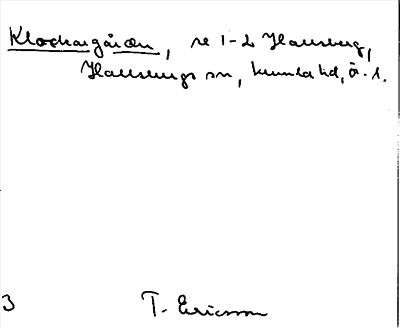 Klockargården, se 1-2 Hallsberg,
Hallsbergs sn, Kumla hd, Ö. l.
3 T. Ericsson